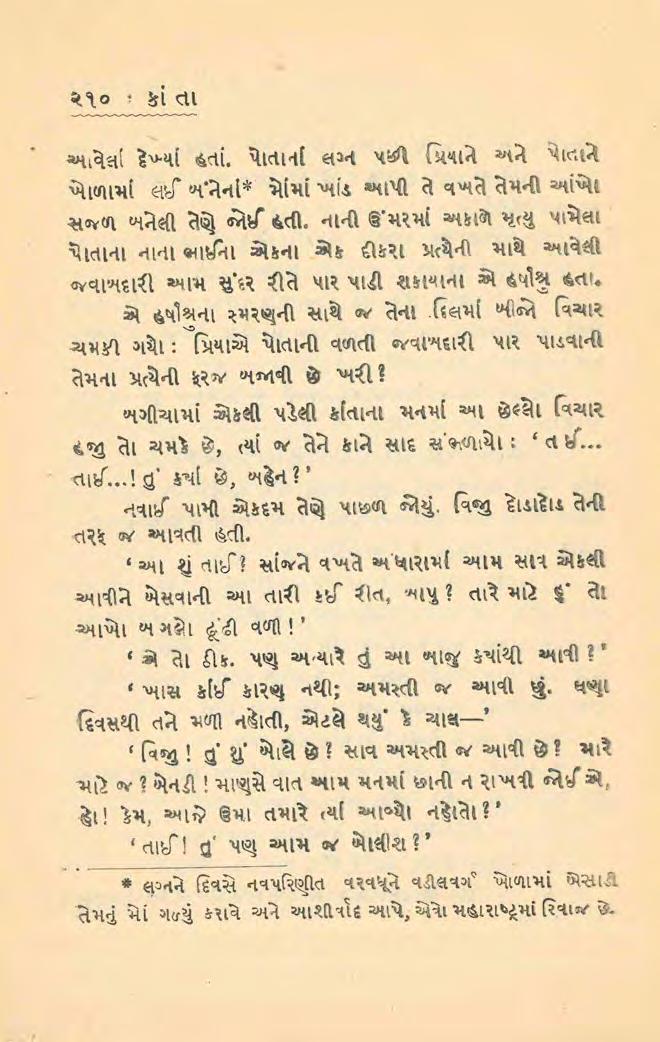 ૨૧૦ : કાંતા
આવેલાં દેખ્યાં હતાં. પોતાનાં લગ્ન પછી પ્રિયાને અને પોતાને
ખોળામાં લઈ બંનેનાં* મોંમાં ખાંડ આપી તે વખતે તેમની આંખો
સજળ બનેલી તેણે જોઈ હતી. નાની ઉંમરમાં અકાળે મૃત્યુ પામેલા
પોતાના નાના ભાઈના એકના એક દીકરા પ્રત્યેની માથે આવેલી
જવાબદારી આમ સુંદર રીતે પાર પાડી શકાયાના એ હર્ષાશ્રુ હતા.
એ હર્ષાશ્રુના સ્મરણની સાથે જ તેના દિલમાં બીજો વિચાર
ચમકી ગયો : પ્રિયાએ પોતાની વળતી જવાબદારી પાર પાડવાની
તેમના પ્રત્યેની ફરજ બજાવી છે ખરી ?
બગીચામાં એકલી પડેલી કાંતાના મનમાં આ છેલ્લો વિચાર
હજી તો ચમકે છે, ત્યાં જ તેને કાને સાદ સંભળાયો : ‘ તાઈ...
તાઈ...! તું ક્યાં છે, બહેન ? ’
નવાઈ પામી એકદમ તેણે પાછળ જોયું. વિજી દોડાદોડ તેની
તરફ જ આવતી હતી.
‘ આ શું તાઈ ? સાંજને વખતે અંધારામાં આમ સાવ એકલી
આવીને બેસવાની આ તારી કઈ રીત, બાપુ ? તારે માટે હું તો
આખો બગલો ઢૂંઢી વળી ! ’
‘ એ તો ઠીક. પણ અત્યારે તું આ બાજુ ક્યાંથી આવી ? ’
‘ ખાસ કાંઈ કારણ નથી; અમસ્તી જ આવી છું. ઘણા
દિવસથી તને મળી નહોતી, એટલે થયું કે ચાલ—’
‘ વિજી ! તું શું બોલે છે ? સાવ અમસ્તી જ આવી છે ? મારે
માટે જ ? બેનડી ! માણસે વાત આમ મનમાં છાની ન રાખવી જોઈએ,
હો ! કેમ, આજે ઉમા તમારે ત્યાં આવ્યો નહોતો ? ’
‘ તાઈ ! તું પણ આમ જ બોલીશ ? ’
* લગ્નને દિવસે નવપરિણીત વરવધૂને વડીલવર્ગ ખોળામાં બેસાડી
તેમનું મોં ગળ્યું કરાવે અને આશીર્વાદ આપે, એવો મહારાષ્ટ્રમાં રિવાજ છે.